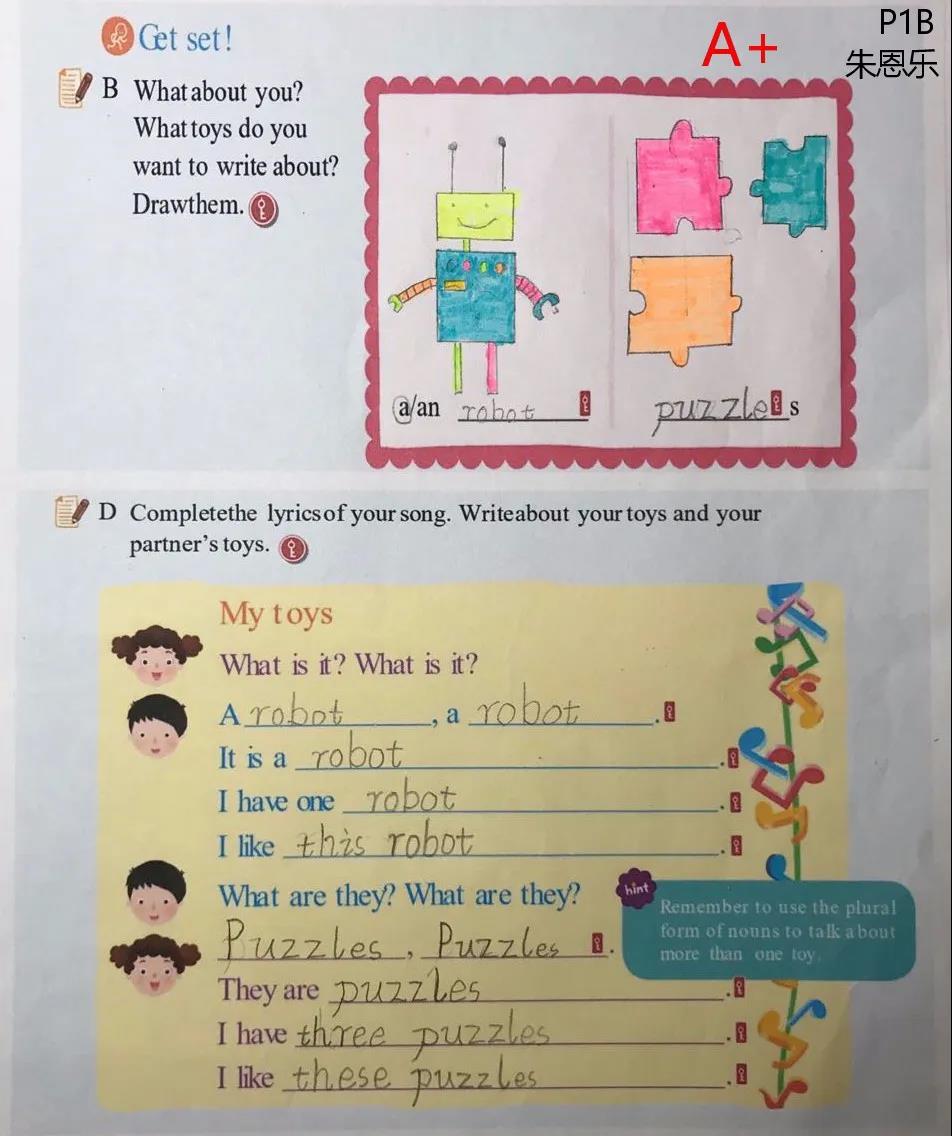 Get set!
A+
P1B
朱恩乐
B What about you?
What toys do you
want to write about?
Draw them.
a/an robot
puzzle s
D Complete the lyrics of your song. Write about your toys and your
partner's toys.
My toys
What is it? What is it?
A robot, a robot.
It is a robot.
I have one robot.
I like this robot.
What are they? What are they?
Puzzles, Puzzles.
hint
Remember to use the plural
form of nouns to talk about
more than one toy.
They are puzzles.
I have three puzzles.
I like these puzzles.